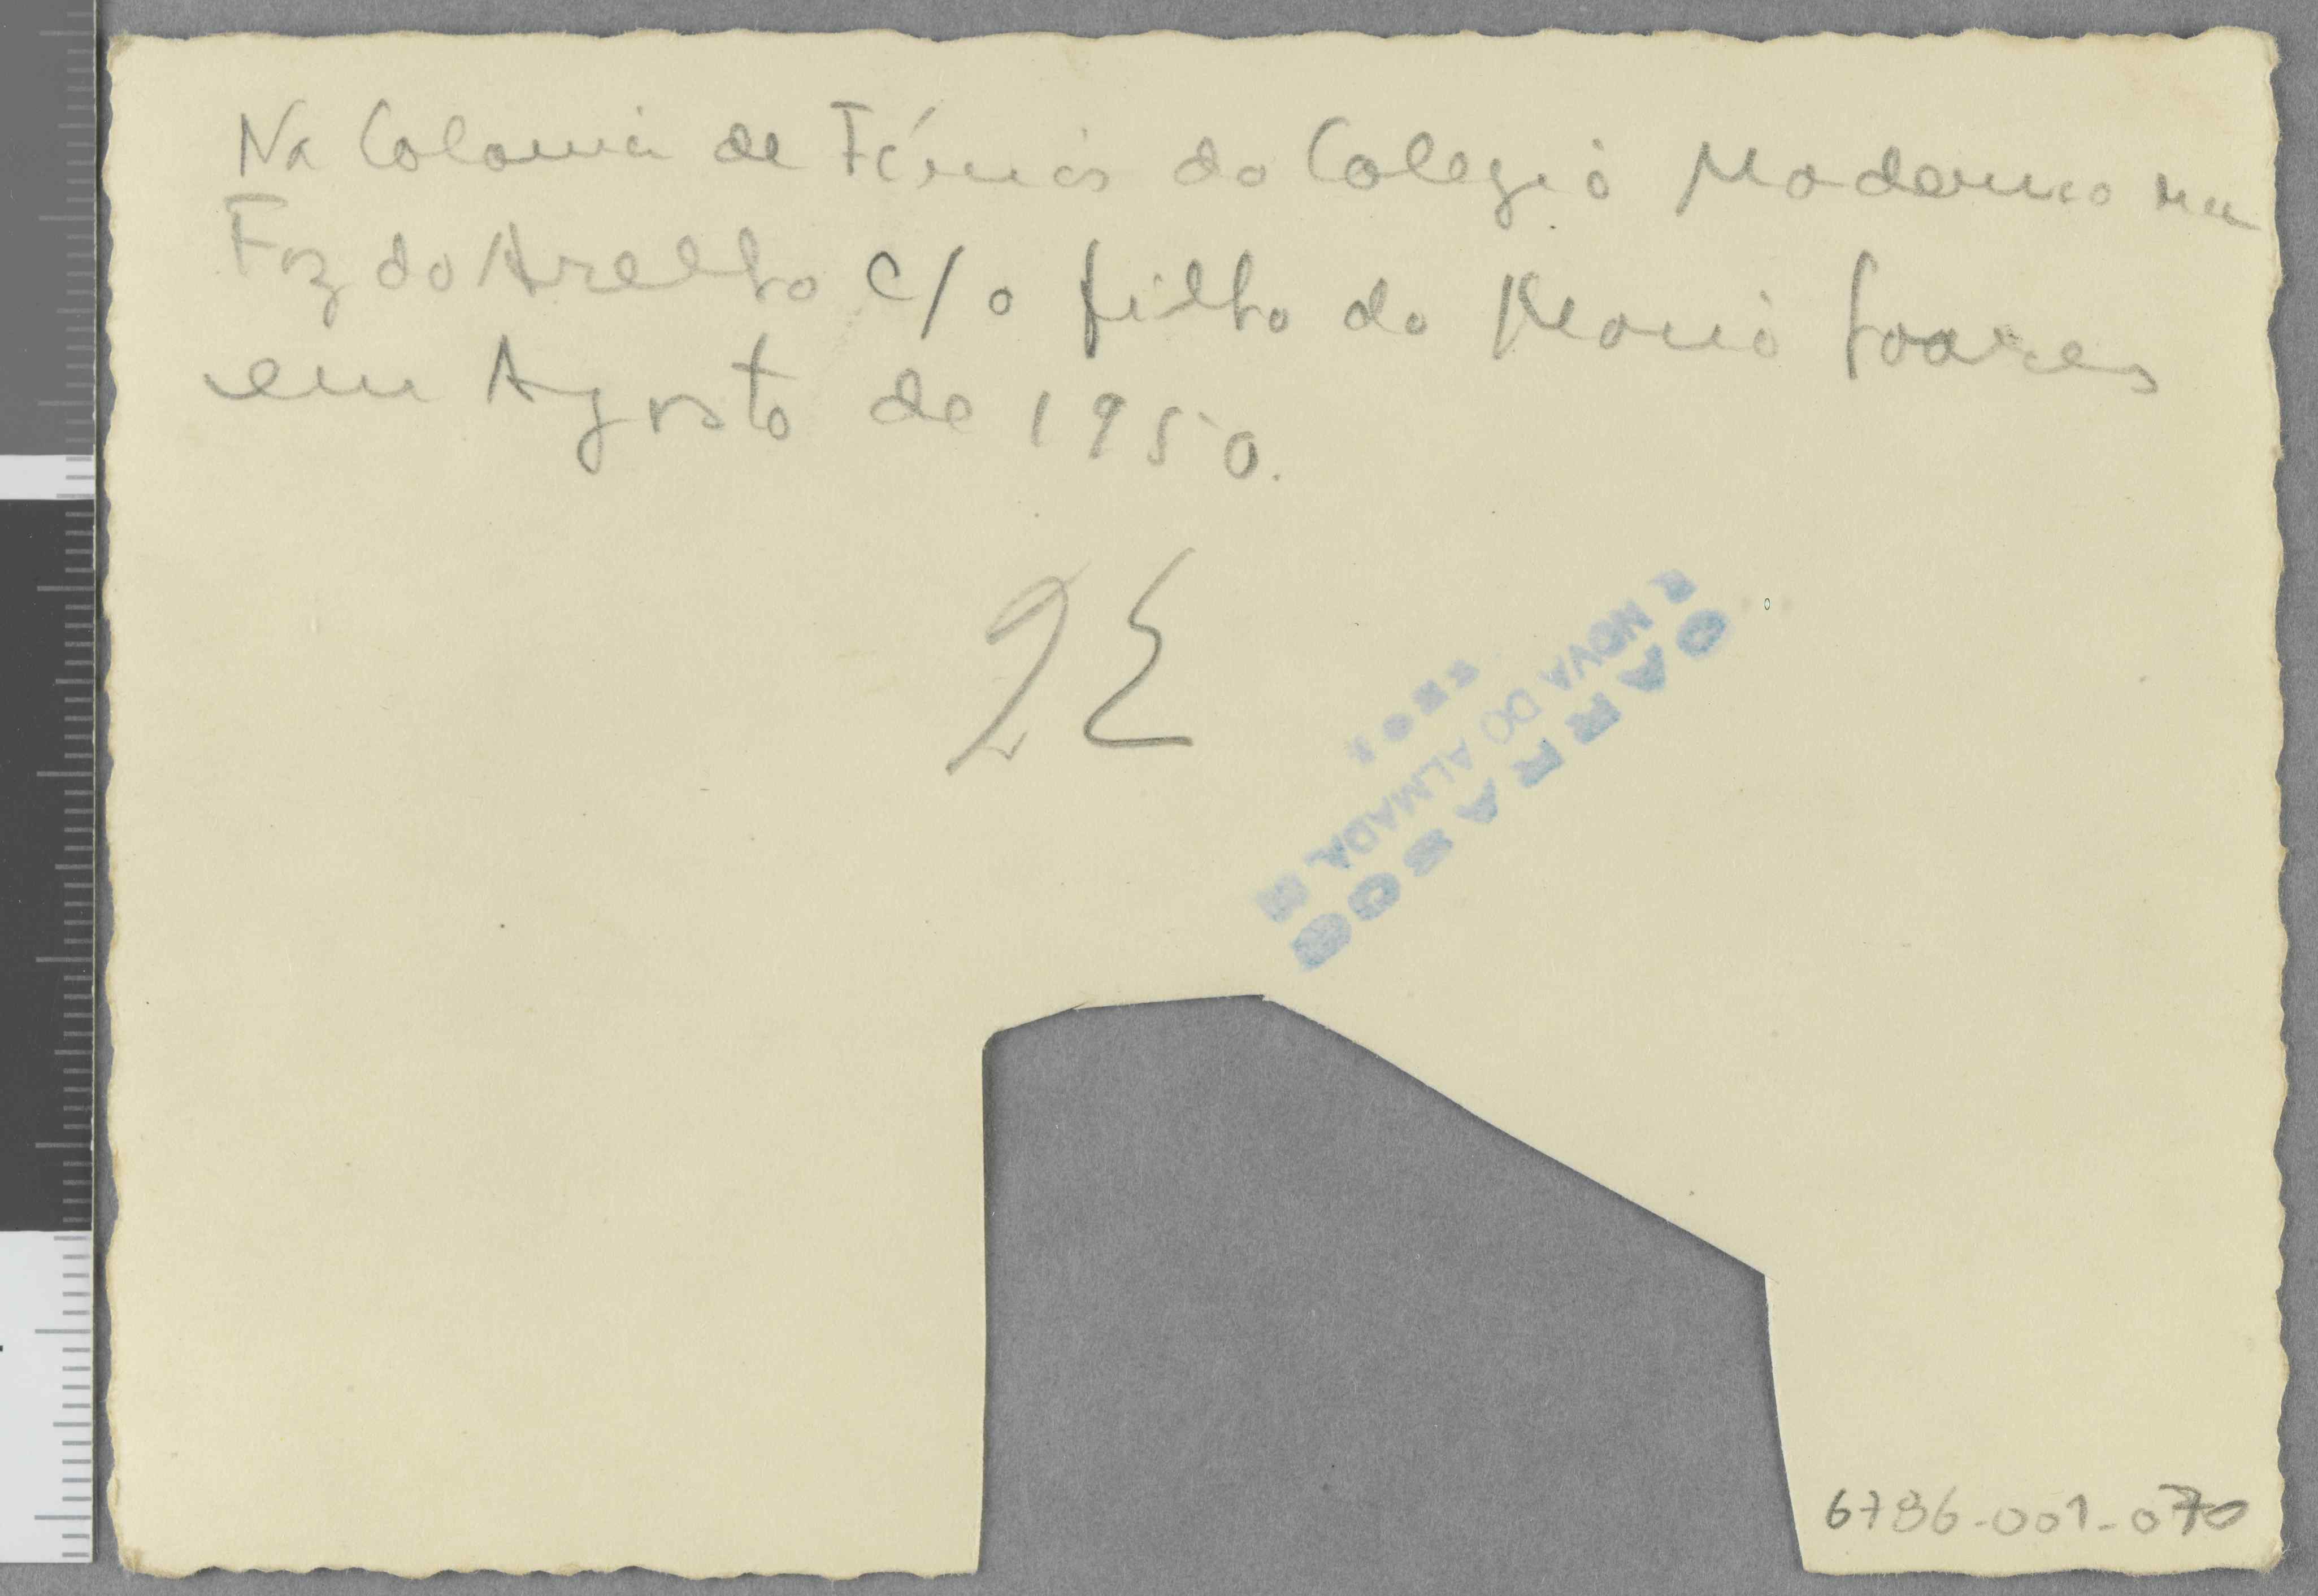 Na Colonia de Férias do Colegio Moderno na
Foz do Arelho c/o filho do Mario Soares
em Agosto de 1950.
R NOVA DO ALMADA
6786-001-070